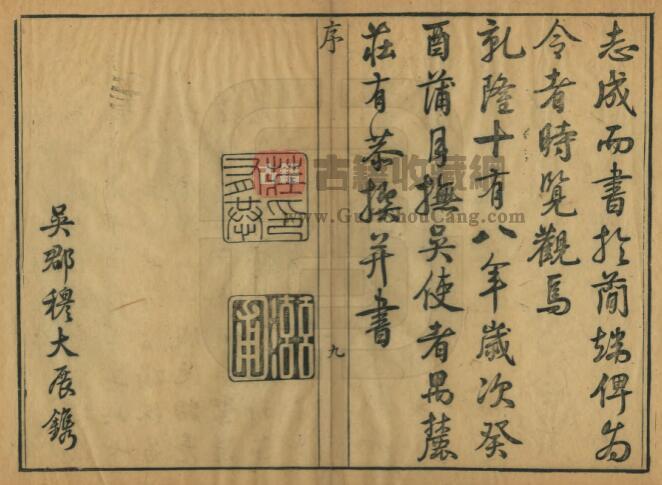 志成而書於簡端俾爲
令者時覽觀焉
乾隆十有八年歲次癸
酉蒲月撫吳使者禺麓
莊有恭撰并書
序
九
莊有恭印
吳郡穆大展鐫
古籍收藏網
www.GuJiShouCang.com
古籍